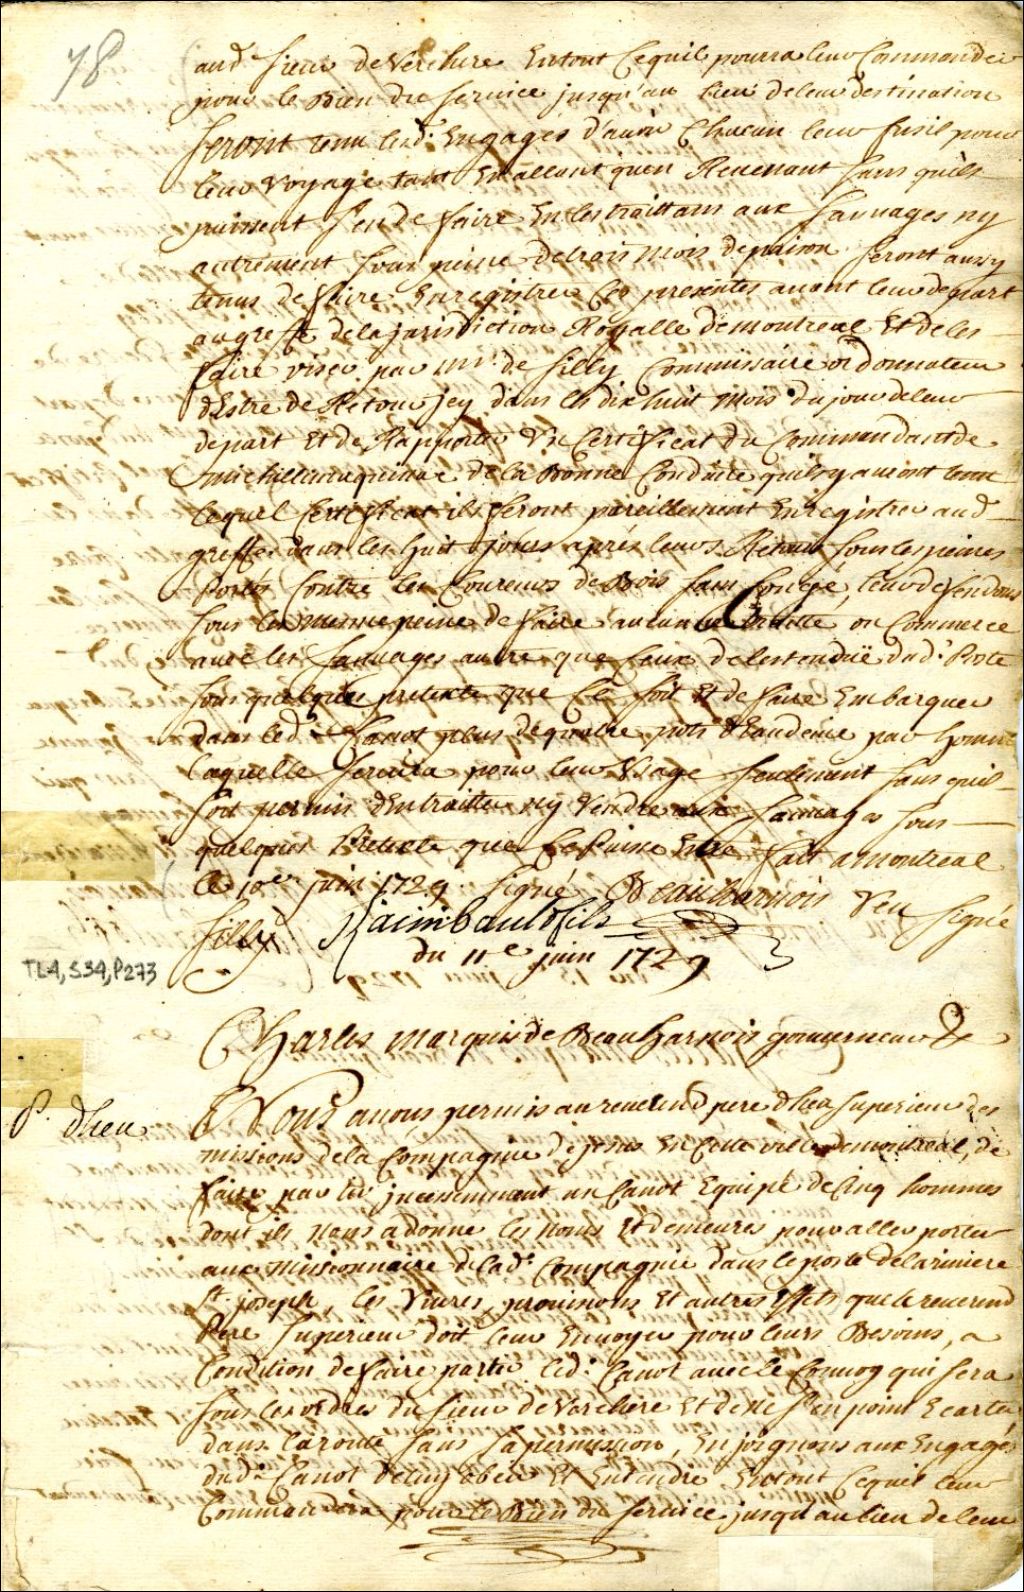 78
aud. Sieur de Verchere En tout Ce quil pourra leur Commander
pour le Bien du Service jusqu'au lieu de leur destination
Seront tenu lesd. Engagés d'avoir Chacun leur fusil pour
leur Voyage tant En allant quen Revenant Sans quils
puissent S'en de faire En les traittans aux Sauvages ny
autrement Sous peine de trois Mois de prison. Seront aussy
tenus de faire Enregistrer Ces presentes avant leur depart
au greffe de la jurisdiction Royalle de montreal Et de les
faire viser par Mr. de Silly Commissaire ordonnateur
d'Estre de Retour jcy dans les dix huit Mois du jour de leur
depart Et de Rapporter Un Certificat du Commandant de
michillimaquinac de la Bonne Conduite quils y auront tenu
lequel Certificat ils feront pareillement Enregistrer aud.
greffe dans les huit jours aprés leurs Retour Sous les peines
Portés Contre les Coureurs de Bois Sans Congé, leur deffendons
Sous les mesme peine de faire aucune traitte ou Commerce
avec les Sauvages autre que Ceux de lestenduë dud. Poste
Sous quelque pretexte que Ce Soit Et de faire Embarquer
dans led. Canot plus de quatre pots d'Eaudevie par homme
laquelle Servira pour leur Usage Seulement Sans quil
Soit permis d'En traitter ny Vendre aux Sauvages Sous
quelques Pretexte que Ce Puisse Estre fait a montreal
le 10er juin 1729 Signé Beauharnois Veu Signé
Silly Raimbault fils
du 11e juin 1729
TL4, S34, P273
Charles Marquis de Beauharnois gouverneur &
P. dheu
Nous avons permis au reverend pere dheu Superieur des
missions de la Compagnie de jesus En Cette ville de montreal, de
faire partir incessamment un Canot Equipé de Cinq hommes
dont ils nous a donne les noms Et demeures pour aller porter
aux missionnaire de lad. Compagnie dans le poste de la riviere
St. joseph, les Vivres, provisions Et autres Effets que le reverend
Pere Superieur doit leur Envoyer pour leurs Besoins, a
Condition de faire partir led. Canot avec le Convoy qui Sera
Sous les ordres du Sieur de Verchere Et de ne S'en point Ecarter
dans la route Sans Sa permission, Enjoignons aux Engagés
dud. Canot de luy obeir Et Entendre En tout Ce quil leur
Commandera pour le Bien du Service jusqu'au lieu de leur